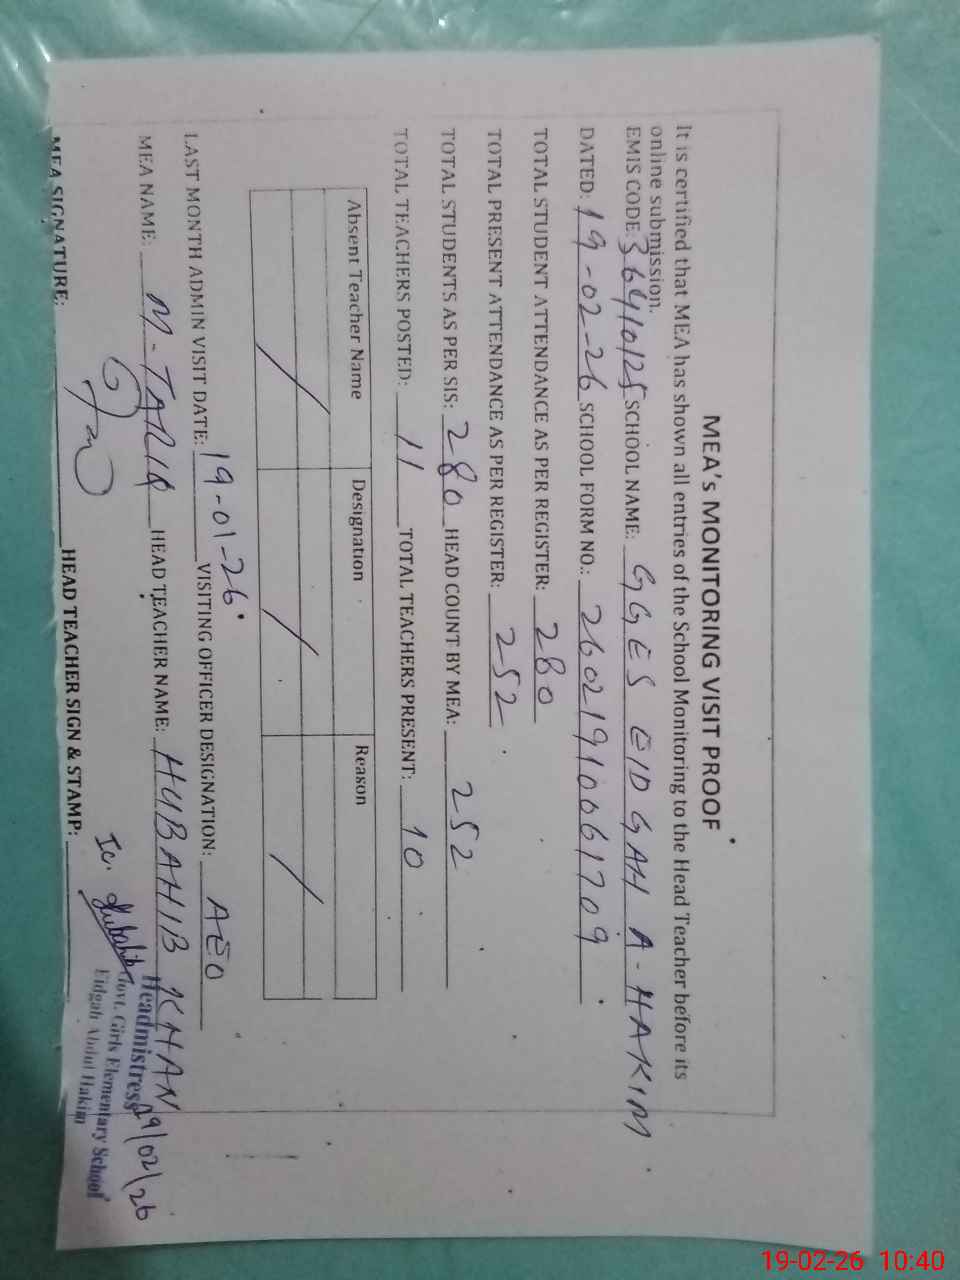 MEA's MONITORING VISIT PROOF
It is certified that MEA has shown all entries of the School Monitoring to the Head Teacher before its
online submission.
EMIS CODE: 36410125 SCHOOL NAME: GGES EIDGAH A-HAKIM
DATED: 19-02-26 SCHOOL FORM NO.: 26021910061709
TOTAL STUDENT ATTENDANCE AS PER REGISTER: 280
TOTAL PRESENT ATTENDANCE AS PER REGISTER: 252
TOTAL STUDENTS AS PER SIS: 280 HEAD COUNT BY MEA: 252
TOTAL TEACHERS POSTED: 11 TOTAL TEACHERS PRESENT: 10
Absent Teacher Name Designation Reason
LAST MONTH ADMIN VISIT DATE: 19-01-26 VISITING OFFICER DESIGNATION: AEO
MEA NAME: M-TARIQ HEAD TEACHER NAME: HUBAHIB KHAN
MEA SIGNATURE: HEAD TEACHER SIGN & STAMP:
Headmistress 19/02/26
Govt. Girls Elementary School
Eidgah Abdul Hakim
19-02-26 10:40